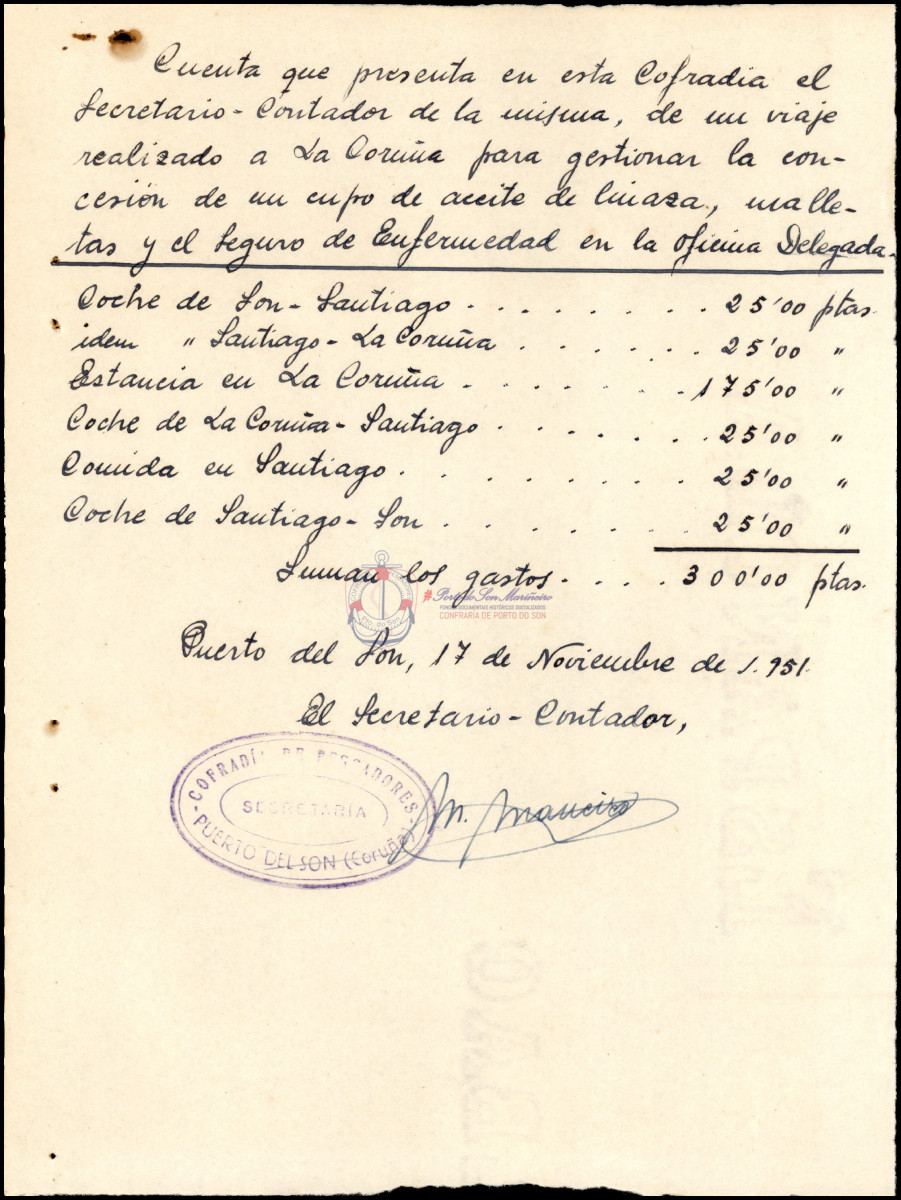 Cuenta que presenta en esta Cofradia el
Secretario-Contador de la misma, de un viaje
realizado a La Coruña para gestionar la con-
cesión de un cupo de aceite de linaza, malle-
tas y el Seguro de Enfermedad en la Oficina Delegada.
Coche de Son-Santiago . . . . . . . 25'00 ptas.
idem " Santiago-La Coruña . . . . . . 25'00 "
Estancia en La Coruña . . . . . . 175'00 "
Coche de La Coruña-Santiago . . . . . . 25'00 "
Comida en Santiago . . . . . . . 25'00 "
Coche de Santiago-Son . . . . . . 25'00 "
Suman los gastos . . . . 300'00 ptas.
#Porto do Son Mariñeiro
FONDOS DOCUMENTAIS HISTÓRICOS DIXITALIZADOS
CONFRARÍA DE PORTO DO SON
Puerto del Son, 17 de Noviembre de 1.951.
El Secretario-Contador,
COFRADÍA DE PESCADORES
SECRETARÍA
PUERTO DEL SON (Coruña)
M. Maneiro